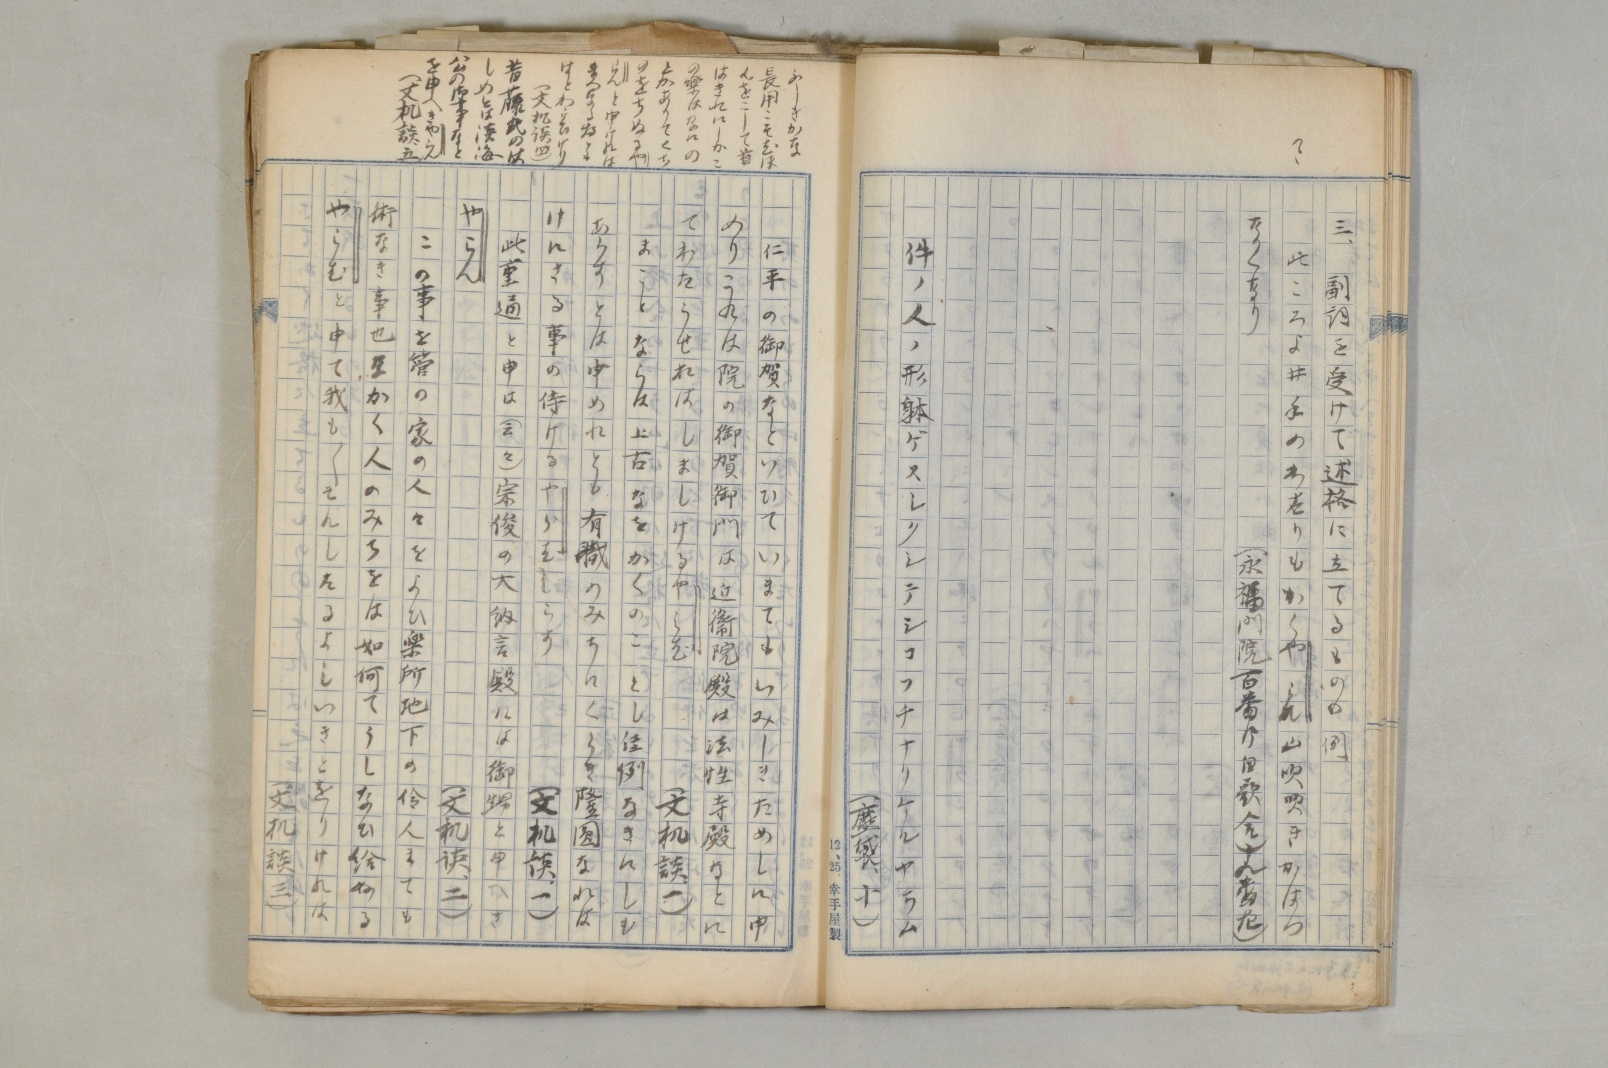 三、副詞を受けて述格に立てるものの例
此ころよ井手のわたりもかくやらん山吹咲きかはつ
なくなり
(永福門院百番御自歌合)十九番左)
件ノ人ノ形躰ゲスレクシテシコツチナリケルヤラム
(塵袋、十)
12、25、幸手屋製
仁平の御賀なといひていまてもいみしきためしに申
めりこれは院の御賀御門は近衞院殿は法性寺殿なとに
てわたらせおはしましけるやらむ
(文机談、一)
まことならは上古なをかくのことし佳例なきにしも
あらすとは申めれとも有職のみちにくらき隆圓なれは
けにさる事の侍けるやらむしらす
(文机談、一)
此重通と申は(云々)宗俊の大納言殿には御甥と申へき
やらん
(文机談、二)
この事を菅の家の人々をよひ樂所地下の伶人まても
術なき事也 かく人のみちをは如何てうしなひ給ける
やらむと申て我も〱そんしたるよしいきとをりけれは
(文机談、三)
(文机談四)
昔藤氏のは
しめとは淡海
公の御事なと
を申へきやらん
(文机談、五)